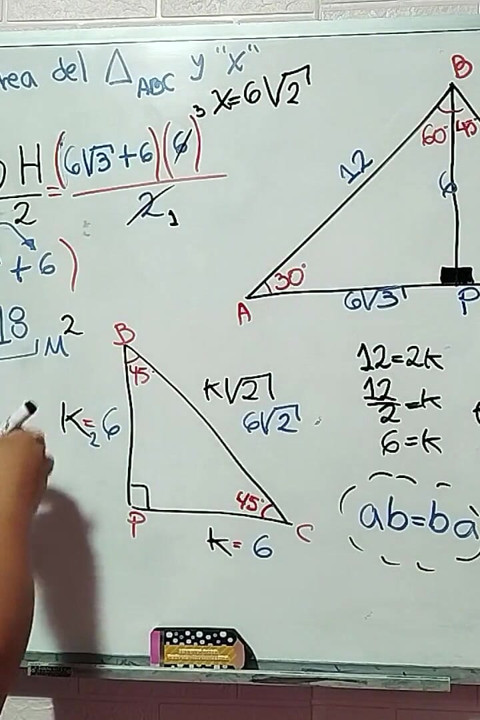 rea del △ABC y "x"
x=6√2
H/2 = (6√3+6)(6)³/2₁
+6)
18 M²
B
60° 45°
12
6
30°
A
6√3
P
B
45°
K=6
2
K√2
6√2
45°
P
C
K=6
12=2K
12/2=K
6=K
ab=ba